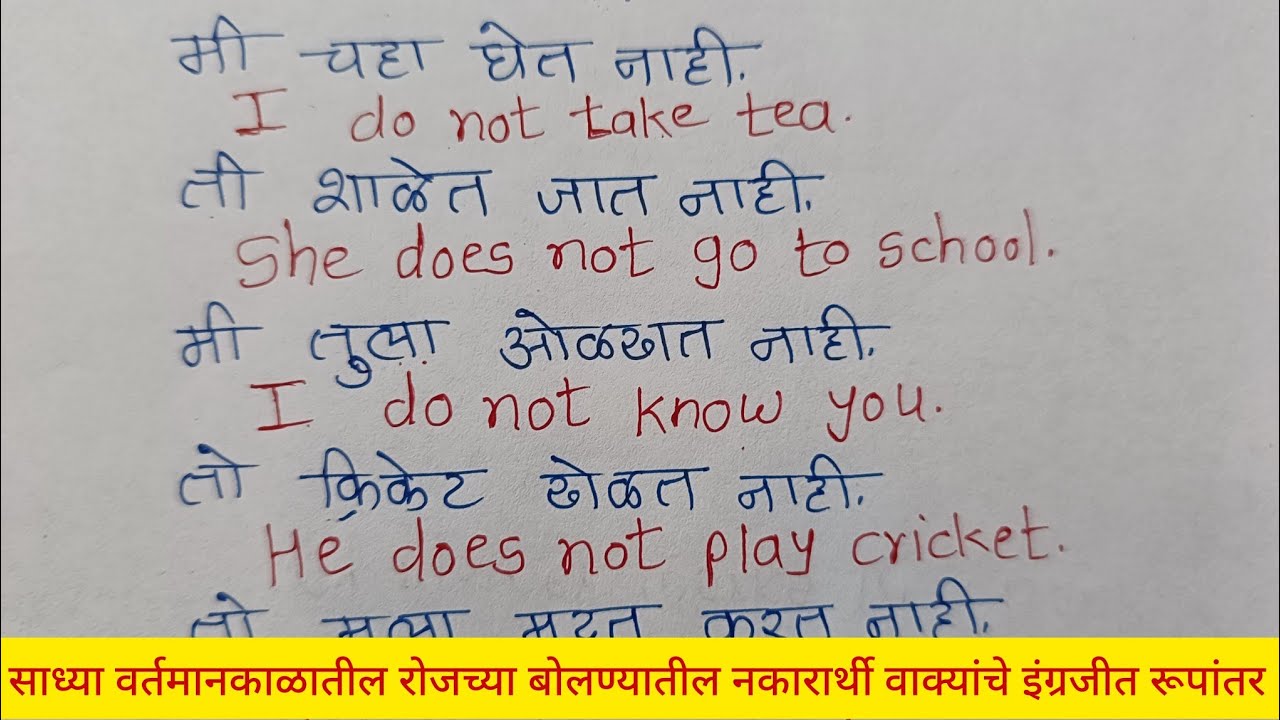 मी चहा घेत नाही.
I do not take tea.
ती शाळेत जात नाही.
She does not go to school.
मी तुला ओळखत नाही.
I do not know you.
तो क्रिकेट खेळत नाही.
He does not play cricket.
तो मला मदत करत नाही.
साध्या वर्तमानकाळातील रोजच्या बोलण्यातील नकारार्थी वाक्यांचे इंग्रजीत रूपांतर